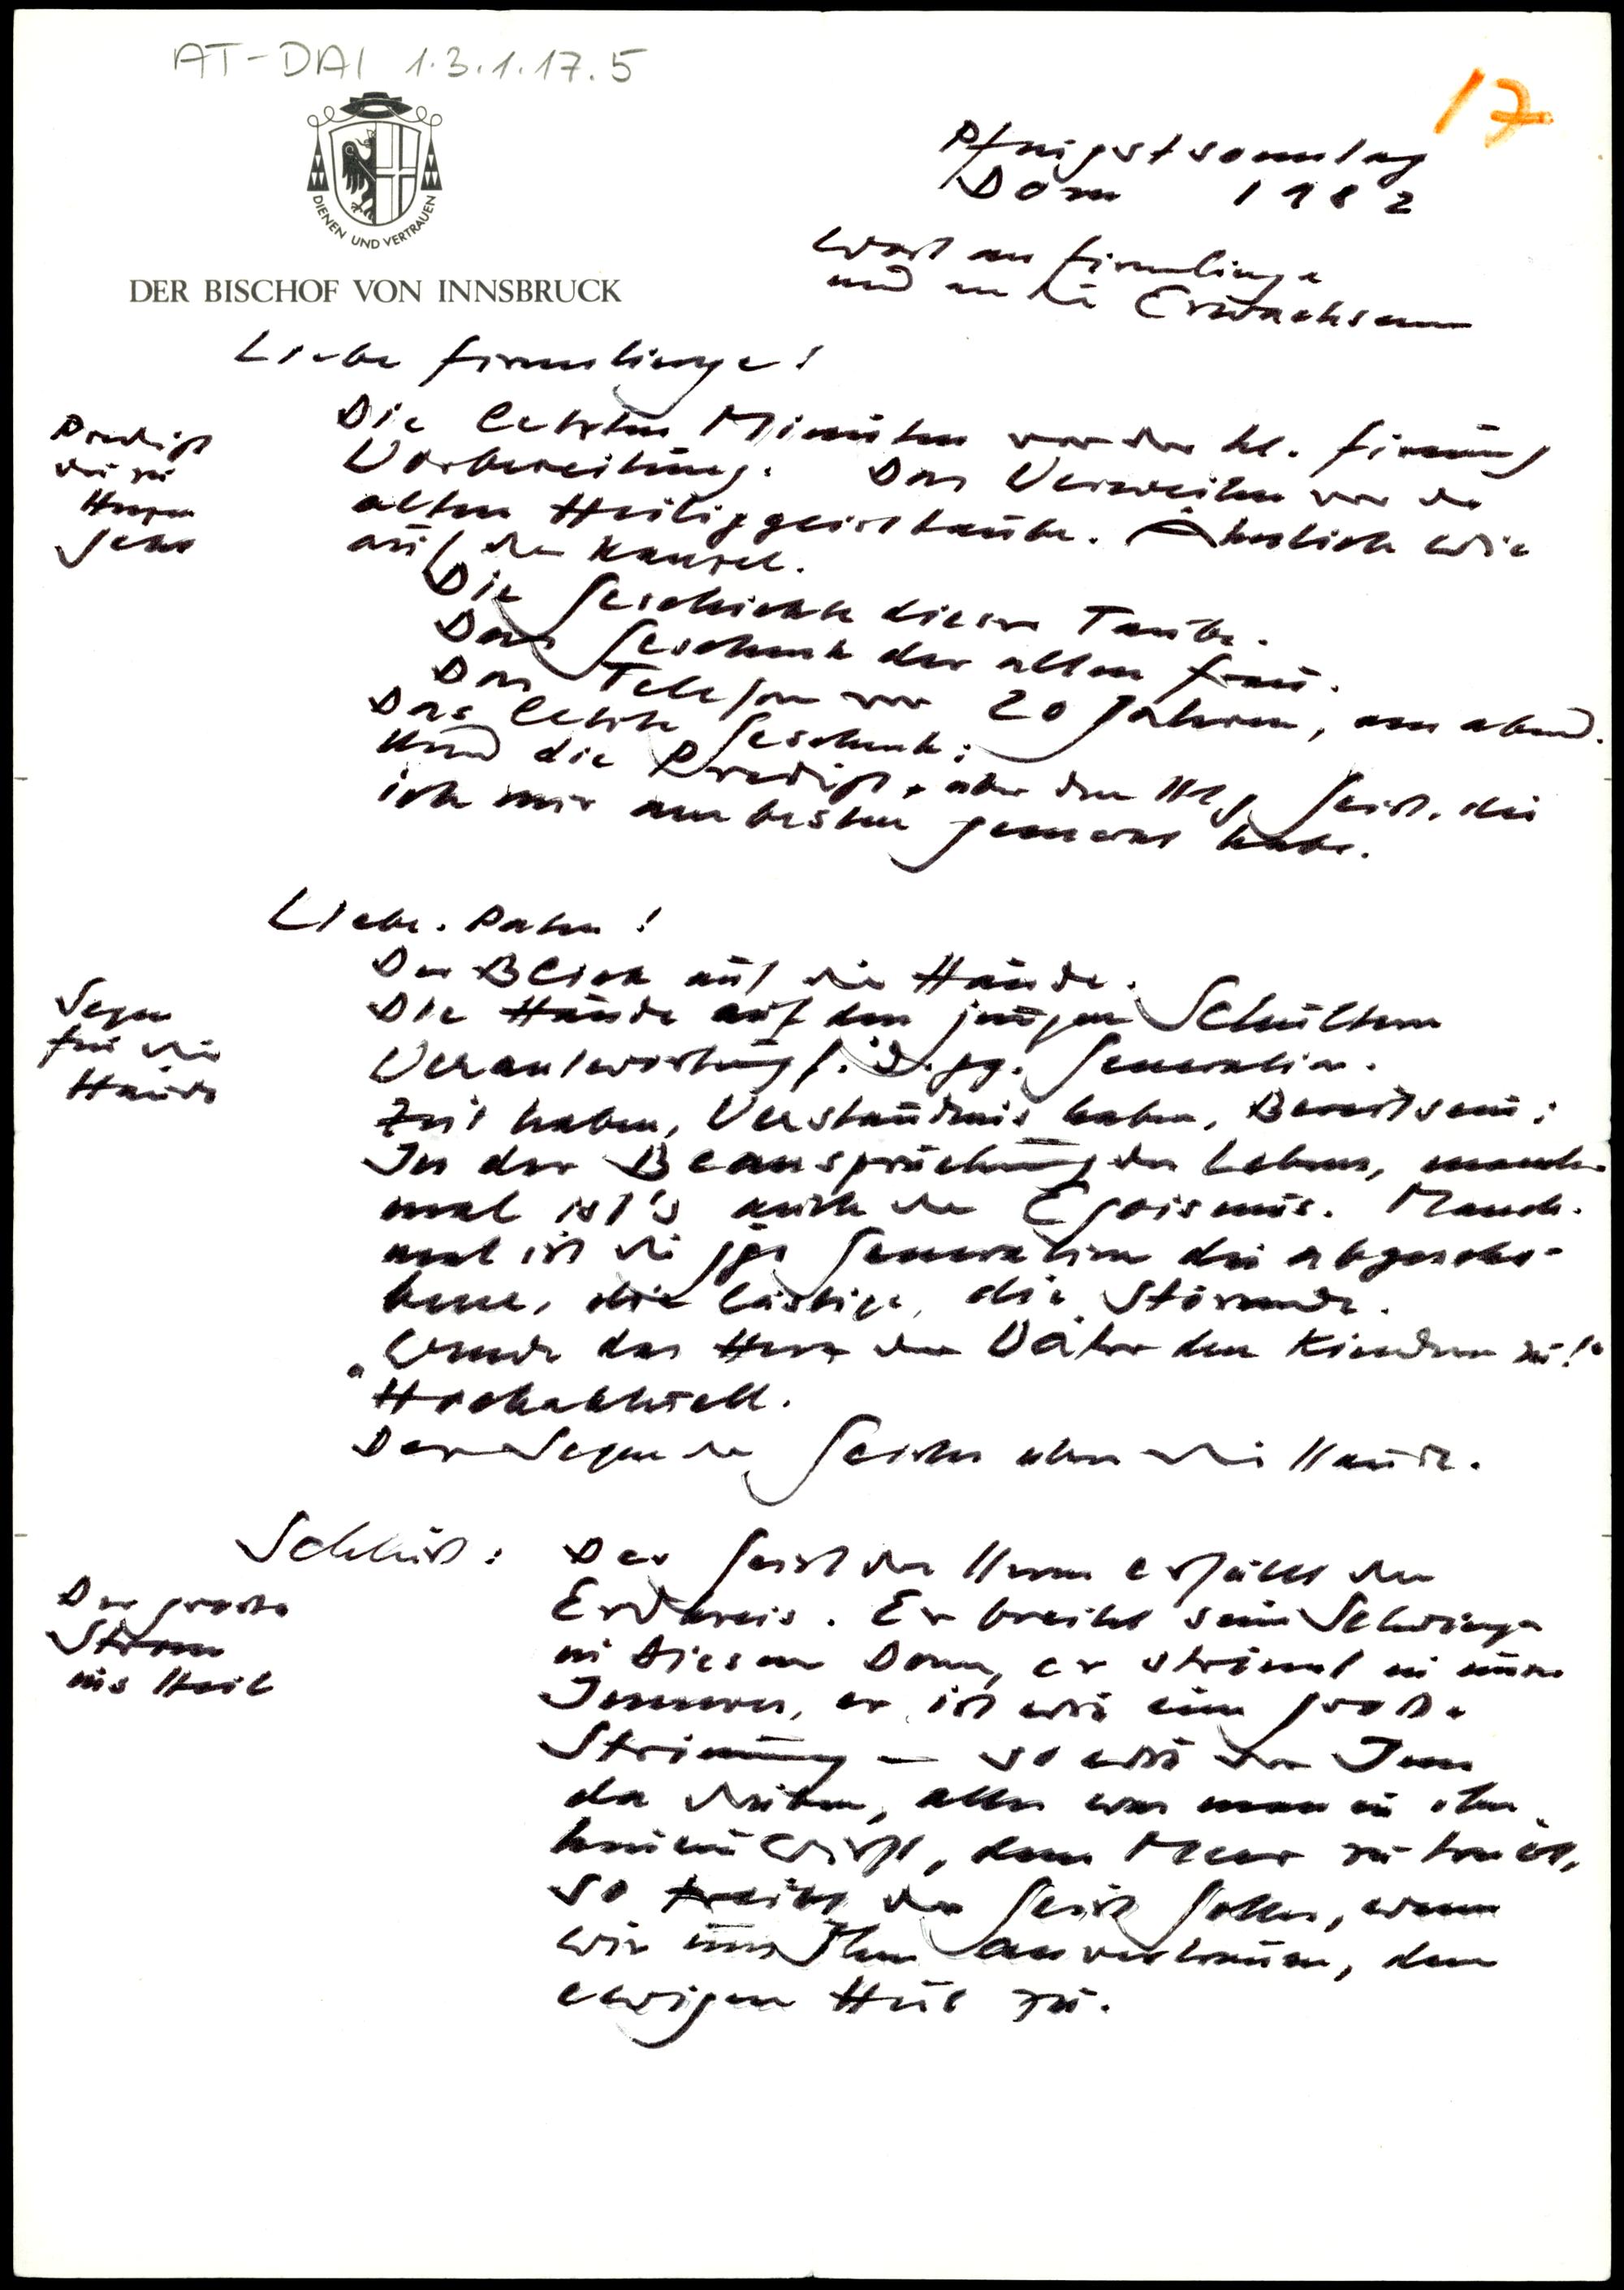 AT-DAI 1.3.1.17.5
17
DIENEN UND VERTRAUEN
DER BISCHOF VON INNSBRUCK
Pfingstsonntag
Dom 1982
Wort an Firmlinge
und an die Erwachsenen
Liebe Firmlinge!
Predigt
die zu
Herzen
geht
Die letzten Minuten vor der hl. Firmung
Vorbereitung. Das Verweilen vor der
alten Heiliggeisttaube. Ähnlich wie
auf der Kanzel.
Die Geschichte dieser Taube.
Das Geschenk der alten Frau.
Das Telefon vor 20 Jahren, am abend.
Das letzte Geschenk:
Und die Predigt über den Hlg Geist, die
ich mir am besten gemerkt habe.
Liebe Paten!
Segen
für die
Hände
Der Blick auf die Hände.
Die Hände auf den jungen Schultern
Verantwortung f. d. jg. Generation.
Zeit haben, Verständnis haben, Bereitsein:
In der Beanspruchung des Lebens, manch-
mal ist's auch der Egoismus. Manch-
mal ist die jge Generation die abgescho-
bene, die lästige, die Störende.
"Wende das Herz der Väter den Kindern zu!"
Hochaktuell.
Der Segen des Geistes über die Hände.
Schluß:
Der große
Strom
ins Heil
Der Geist des Herrn erfüllt den
Erdkreis. Er breitet seine Schwingen
in diesem Dom, er strömt in unser
Inneres, er ist wie eine große
Strömung – so wie der Inn
da drüben, alles was man in ihn
hineinwirft, dem Meer zu trägt,
so treibt der Geist Gottes, wenn
wir uns Ihm anvertrauen, dem
ewigen Heil zu.